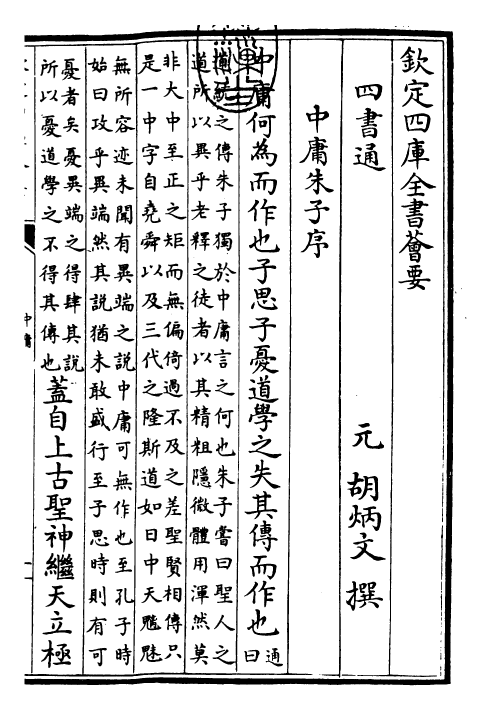 欽定四庫全書薈要
四書通 元 胡炳文 撰
中庸朱子序
中庸何為而作也子思子憂道學之失其傳而作也通曰
道統之傳朱子獨於中庸言之何也朱子嘗曰聖人之
道所以異乎老釋之徒者以其精粗隱微體用渾然莫
非大中至正之矩而無偏倚過不及之差聖賢相傳只
是一中字自堯舜以及三代之隆斯道如日中天魑魅
無所容迹未聞有異端之說中庸可無作也至孔子時
始曰攻乎異端然其說猶未敢盛行至子思時則有可
憂者矣憂異端之得肆其說
所以憂道學之不得其傳也
蓋自上古聖神繼天立極
中庸